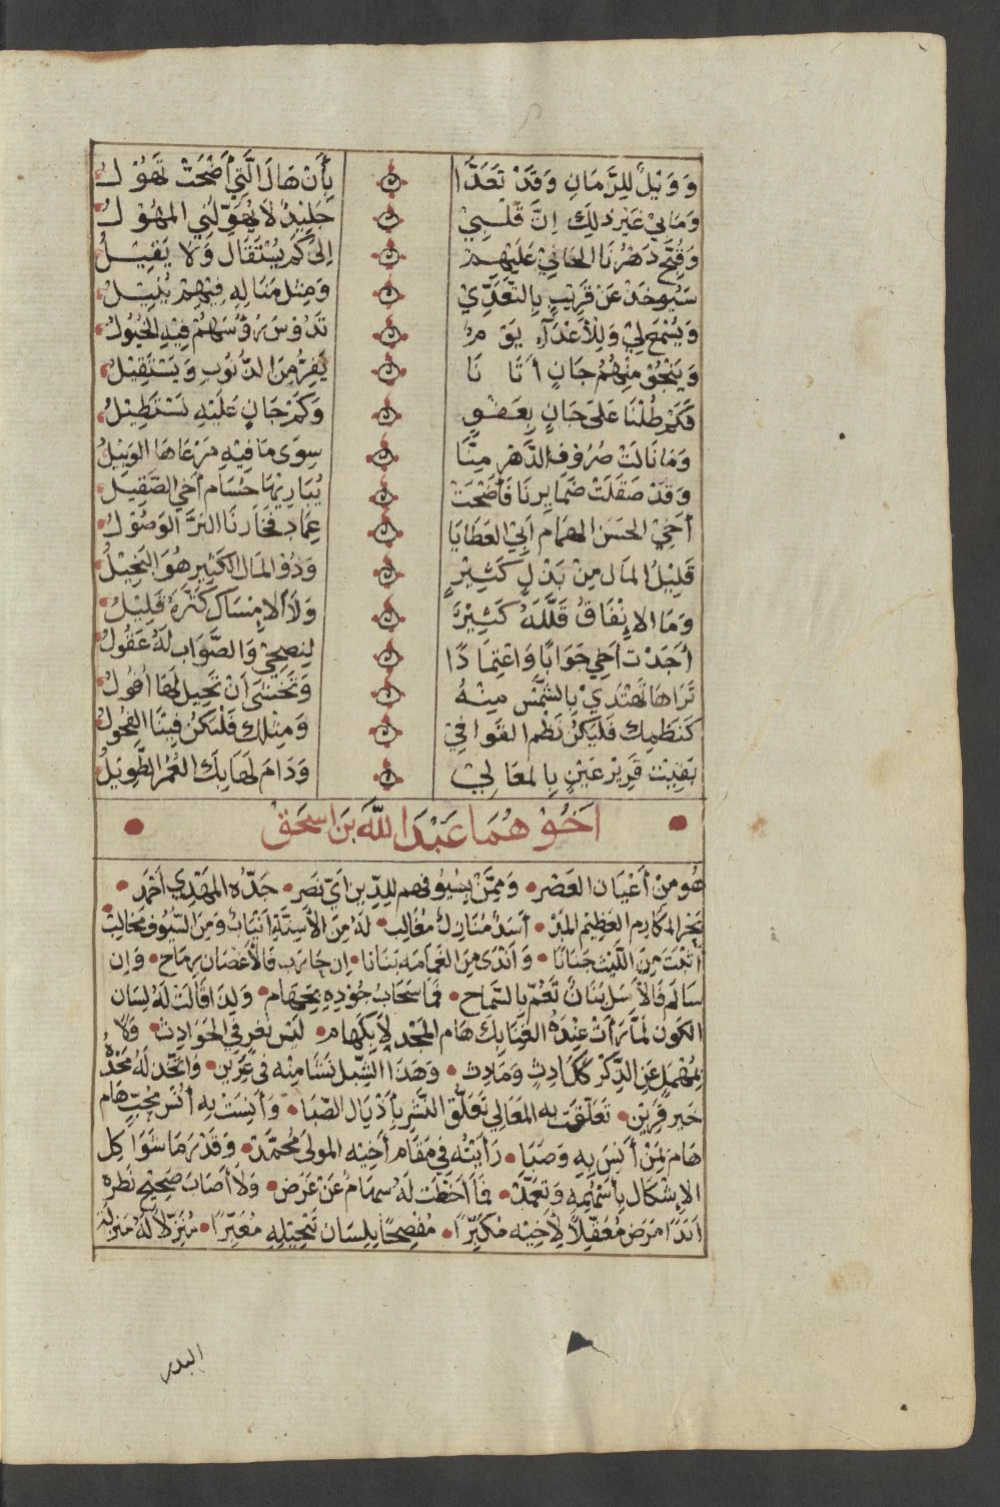 وَوَيْلٌ لِلزَّمَانِ وَقَدْ تَعَدَّا بِأَنْ هَالَ الَّتِي أَضْحَتْ تَهُوْلُ
وَمَا بِي غَيْرَ ذَلِكَ اِنَّ قَلْبِيْ جَلِيْدٌ لَا يُهَوِّلُنِي المَهُوْلُ
دَهْرُنَا الجَانِي عَلَيْهِمْ اِلَى كَمْ يُسْتَقَالُ وَلَا يَقِيْلُ
سَيُوخَذُ عَنْ قَرِيْبٍ بِالتَّعَدِّيْ وَمِثْلُ مَنَالِهِ فِيْهِمْ يُنِيْلُ
وَيُسْمَعُ لِيْ وَلِلْأَعْدَآءِ يَوْمٌ تَدُوْسُ رُؤُسَهُمْ فِيْهِ الخُيُوْلُ
وَيَنْجُوْ مِنْهُمُ جَانٍ أَتَانَا يَفِرُّ مِنَ الذُّنُوبِ وَيَسْتَقِيْلُ
فَكَمْ طُلْنَا عَلَى جَانٍ بِعَفْوٍ وَكَمْ جَانٍ عَلَيْهِ نَسْتَطِيْلُ
وَمَا نَالَتْ صُرُوفُ الدَّهْرِ مِنَّا سِوَى مَا فِيْهِ مَرْعَاهَا الوَبِيْلُ
وَقَدْ صَقَلَتْ ضَمَايِرَنَا فَأَضْحَتْ يُبَارِيْهَا حُسَامُ أَخِي الصَّقِيْلُ
أَخِي الحَسَنُ الهُمَامُ اَبِي العَطَايَا عِمَادُ فَخَارِنَا البَرُّ الوَصُوْلُ
قَلِيْلُ المَالِ مِنْ بَذْلٍ كَثِيْرٍ وَذُو المَالِ الكَثِيْرِ هُوَ البَخِيْلُ
وَمَا الاِنْفَاقُ قَلَّلَهُ كَثِيْرٌ وَلَا الاِمْسَاكُ كَثَّرَهُ قَلِيْلُ
أَجَدْتَ أَخِي جَوَابًا وَاعْتِمَادًا لِنُصْحِيْ وَالصَّوَابُ لَهُ عَقُولُ
تَرَاهَا تَهْتَدِيْ بِالشَّمْسِ مِنْهُ وَتَخْشَى اَنْ تَحِيلَ لَهَا أُفُولُ
كَنَظْمِكَ فَلْيَكُنْ نَظْمُ القَوَافِيْ وَمِثْلُكَ فَلْيَكُنْ فِيْنَا الفُحُولُ
بَقِيْتَ قَرِيْرَ عَيْنٍ بِالمَعَالِي وَدَامَ لَهَا بِكَ العُمْرُ الطَّوِيْلُ
اَخُوْهُمَا عَبْدُ اللّٰهِ بْنُ اِسْحَقْ
هُوَ مِنْ أَعْيَانِ العَصْرِ • وَمِمَّنْ بِسُيُوفِهِمْ لِلدِّيْنِ أَيُّ نَصْرٍ • جَدُّهُ المَهْدِي اَحْمَدْ •
بَحْرُ المَكَارِمِ العَظِيْمِ المَدْ • أَسَدُ مُنَازِلٍ مُغَالِبٌ • لَهُ مِنَ الأَسِنَّةِ أَنْيَابٌ وَمِنَ السُّيُوفِ مَخَالِبٌ
أَثْبَتُ مِنَ اللَّيْثِ جَنَانًا • وَأَنْدَى مِنَ الغَمَامَةِ بَنَانًا • اِنْ حَارَبَ فَالأَغْصَانُ رِمَاحٌ • وَاِنْ
سَالَمَ فَالأَسَلُ بَنَانٌ تَعُمُّ بِالسَّمَاحِ • فَمَا سَحَابُ جُوْدِهِ بِجَهَامٍ • وَلِذَا قَالَتْ لَهُ لِسَانُ
الكَوْنِ لَمَّا رَأَتْ عِنْدَهُ هَامَ المَجْدِ لَا بِكَهَامٍ • لَيْسَ بِغِرٍّ فِي الحَوَادِثِ • وَلَا
بِمُهْمَلٍ عَنِ الذِّكْرِ كَلَادِثٍ وَمَادِثٍ • وَهَذَا الشِّبْلُ نَشَا مِنْهُ فِي عَرِيْنٍ • وَاتَّخَذَ لَهُ مَجْدُهُ
خَيْرَ قَرِيْنٍ • تَعَلَّقَتْ بِهِ المَعَالِي تَعَلُّقَ النَّشْرِ بِأَذْيَالِ الصَّبَا • وَأَنِسَتْ بِهِ أُنْسَ مُحِبٍّ هَامَ
هَامَ بِمَنْ أَنِسَ بِهِ وَصَبَا • رَأَيْتُهُ فِي مَقَامِ أَخِيْهِ المَولَى مُحَمَّدٍ • وَقَدْ رَمَا شَوَاكِلَ
الاِشْكَالِ بِأَسْهُمِهِ وَتَعَمَّدَ • فَمَا أَخْطَتْ لَهُ سِهَامٌ عَنْ غَرَضٍ • وَلَا أَصَابَ صَحِيْحَ نَظَرِهِ
اَبَدًا مَرَضٌ مُكَبِّرًا • مُفْصِحًا بِلِسَانِ تَبْجِيْلِهِ مُعَبِّرًا • مُنَزِّلًا لَهُ مَنْزِلَةَ
البدر